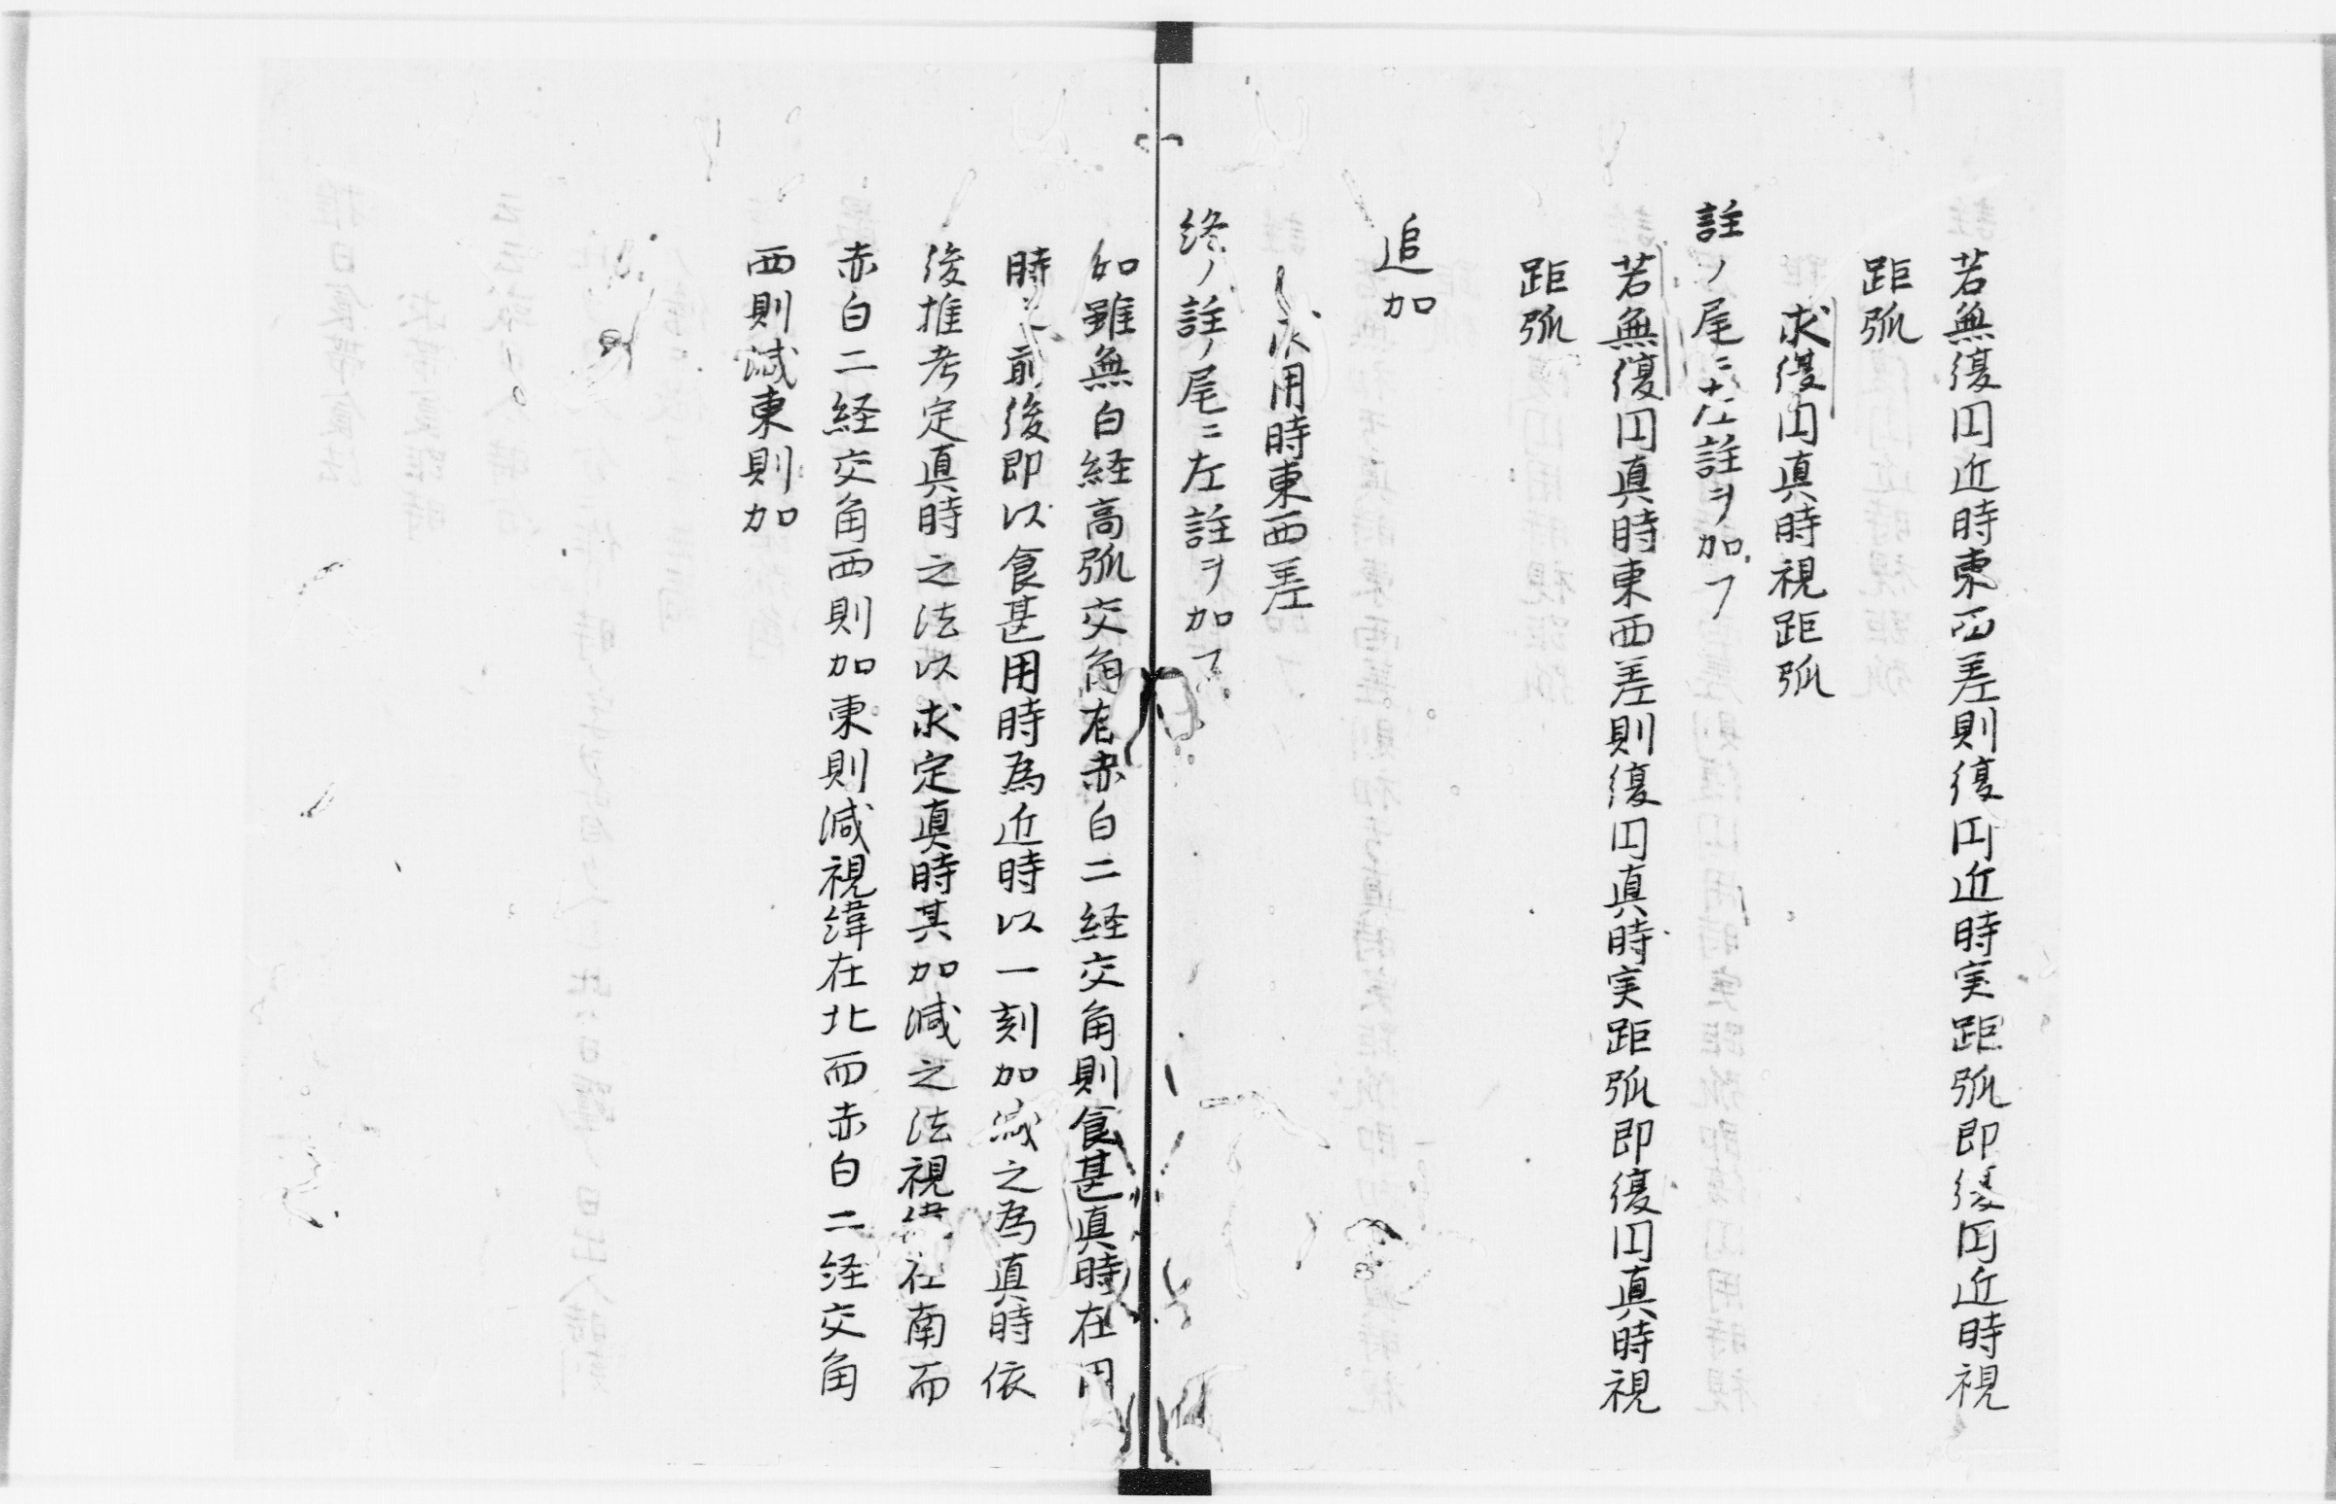 若無復円近時東西差則復円近時実距弧即復円近時視
距弧
求復円真時視距弧
註ノ尾ニ左註ヲ加フ
若無復円真時東西差則復円真時実距弧即復円真時視
距弧
追加
求用時東西差
終ノ註ノ尾ニ左註ヲ加フ
如雖無白経高弧交角右赤白二経交角則食甚真時在用
時之前後即以食甚用時為近時以一刻加减之為真時依
後推考定真時之法以求定真時其加减之法視緯在南而
赤白二経交角西則加東則减視緯在北而赤白二経交角
西則减東則加